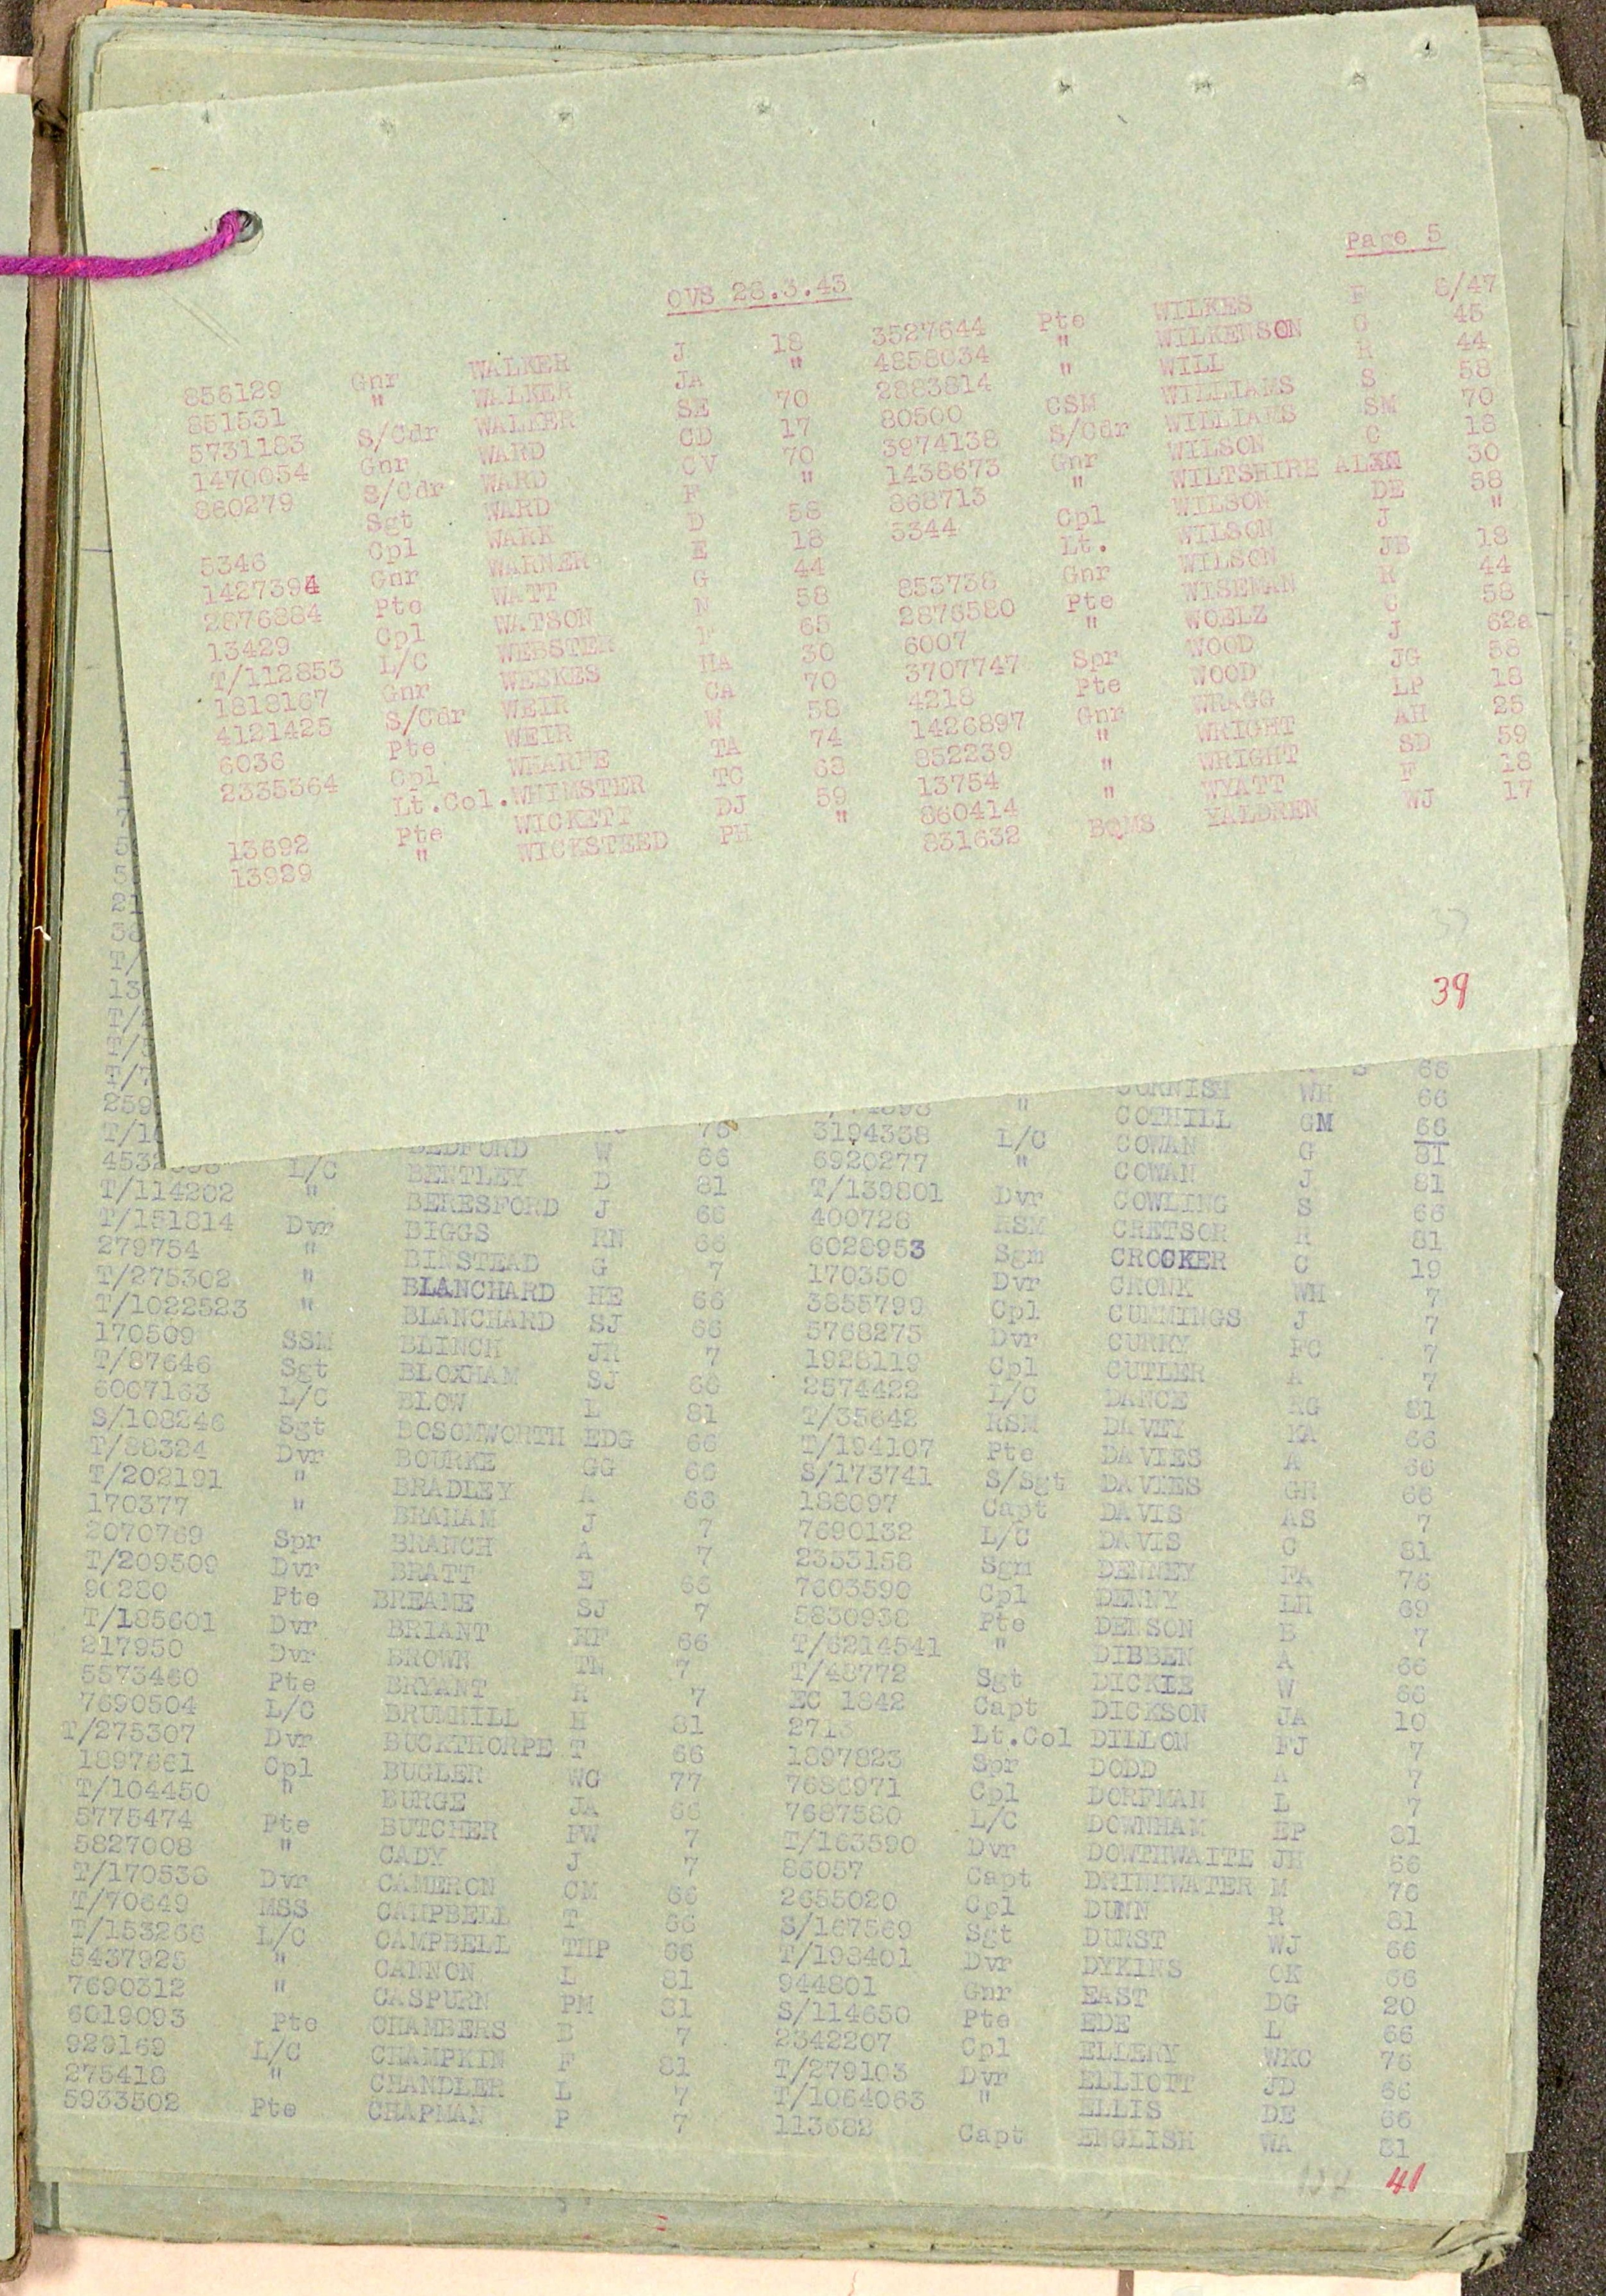 Page 5
OVS 28.3.43
856129 Gnr WALKER J 18 3527644 Pte WILKES F 8/47
851531 " WALKER JA " 4858034 " WILKENSON G 45
5731183 S/Cdr WALKER SE 70 2883814 " WILL R 44
1470054 Gnr WARD CD 17 80500 CSM WILLIAMS S 58
860279 S/Cdr WARD CV 70 3974138 S/Cdr WILLIAMS SM 70
Sgt WARD F " 1438673 Gnr WILSON C 18
5346 Cpl WARK D 58 868713 " WILTSHIRE ALEN 30
1427394 Gnr WARNER E 18 5344 Cpl WILSON DE 58
2876884 Pte WATT G 44 Lt. WILSON J "
13429 Cpl WATSON N 58 853738 Gnr WILSON JB 18
T/112853 L/C WEBSTER F 65 2876580 Pte WISEMAN R 44
1818167 Gnr WEEKES HA 30 6007 " WOELZ C 58
4121425 S/Cdr WEIR CA 70 3707747 Spr WOOD J 62a
6036 Pte WEIR W 58 4218 Pte WOOD JG 58
2335364 Cpl WHARFE TA 74 1426897 Gnr WRAGG LP 18
Lt.Col. WHIMSTER TC 63 852239 " WRIGHT AH 25
13692 Pte WICKETT DJ 59 13754 " WRIGHT SD 59
13929 " WICKSTEED PH " 860414 " WYATT F 18
831632 BQMS YALDREN WJ 17
39
66
CORNISH WH 66
76 " COTHILL GM 66
BEDFORD W 66 3194338 L/C COWAN G 81
L/C BENTLEY D 81 6920277 " COWAN J 81
T/114202 " BERESFORD J 66 T/139801 Dvr COWLING S 66
T/151814 Dvr BIGGS RN 66 400728 RSM CRETSOR R 81
279754 " BINSTEAD G 7 6028953 Sgm CROCKER C 19
T/275302 " BLANCHARD HE 66 170350 Dvr CRONK WH 7
T/1022523 " BLANCHARD SJ 66 3855799 Cpl CUMMINGS J 7
170509 SSM BLINCH JR 7 5768275 Dvr CURRY FC 7
T/87646 Sgt BLOXHAM SJ 66 1928119 Cpl CUTLER A 7
6007163 L/C BLOW L 81 2574422 L/C DANCE RG 81
S/108246 Sgt BOSOMWORTH EDG 66 T/35642 RSM DAVEY KA 66
T/88324 Dvr BOURKE GG 66 T/194107 Pte DAVIES A 66
T/202191 " BRADLEY A 66 S/173741 S/Sgt DAVIES GR 66
170377 " BRAHAM J 7 188097 Capt DAVIS AS 7
2070769 Spr BRANCH A 7 7690132 L/C DAVIS C 81
T/209509 Dvr BRATT E 66 2353158 Sgm DENNEY FA 76
90280 Pte BREAME SJ 7 7603590 Cpl DENNY LH 69
T/185601 Dvr BRIANT HF 66 5830938 Pte DENSON B 7
217950 Dvr BROWN TN 7 T/6214541 " DIBBEN A 66
5573460 Pte BRYANT R 7 T/48772 Sgt DICKIE W 66
7690504 L/C BRUMHILL H 81 EC 1842 Capt DICKSON JA 10
T/275307 Dvr BUCKTHORPE T 66 2713 Lt.Col DILLON FJ 7
1897661 Cpl BUGLER WG 77 1897823 Spr DODD A 7
T/104450 " BURGE JA 66 7686971 Cpl DORFMAN L 7
5775474 Pte BUTCHER FW 7 7687580 L/C DOWNHAM EP 81
5827008 " CADY J 7 T/163590 Dvr DOWTHWAITE JH 66
T/170538 Dvr CAMERON CM 66 86057 Capt DRINKWATER M 76
T/70649 MSS CAMPBELL T 66 2655020 Cpl DUNN R 81
T/153266 L/C CAMPBELL THP 66 S/167569 Sgt DURST WJ 66
5437925 " CANNON L 81 T/193401 Dvr DYKINS OK 66
7690312 " CASPURN PM 81 944801 Gnr EAST DG 20
6019093 Pte CHAMBERS B 7 S/114650 Pte EDE L 66
929169 L/C CHAMPKIN F 81 2342207 Cpl ELLERY WKC 76
275418 " CHANDLER L 7 T/279103 Dvr ELLIOTT JD 66
5933502 Pte CHAPMAN P 7 T/1064063 " ELLIS DE 66
113682 Capt ENGLISH WA 81
41